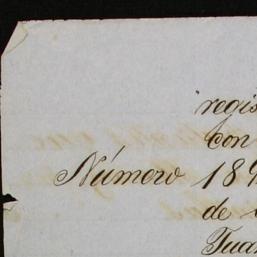 regis
con
Número 189
de
Juan